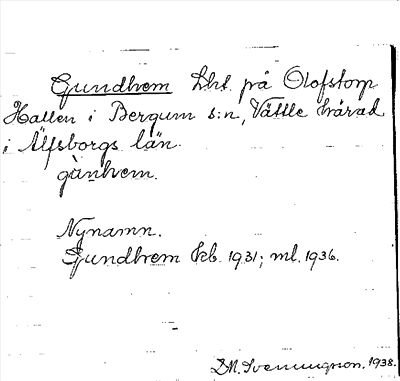 Gundhem Lht. på Olofstorp
Hallen i Bergum s:n, Vättle härad
i Älfsborgs län.
gùnhem.
Nynamn.
Gundhem Kb. 1931; ml. 1936.
D.N. Svenningson. 1938.